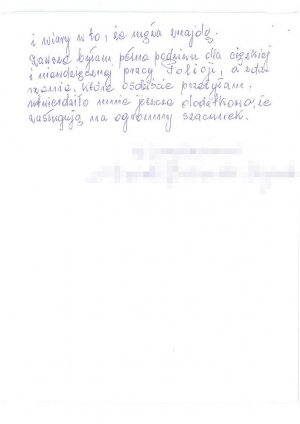 i wiary w to, że męża znajdą.
Zawsze byłam pełna podziwu dla ciężkiej
i niewdzięcznej pracy Policji, a zda-
rzenie, które osobiście przeżyłam,
utwierdziło mnie jeszcze dodatkowo, że
zasługują na ogromny szacunek.